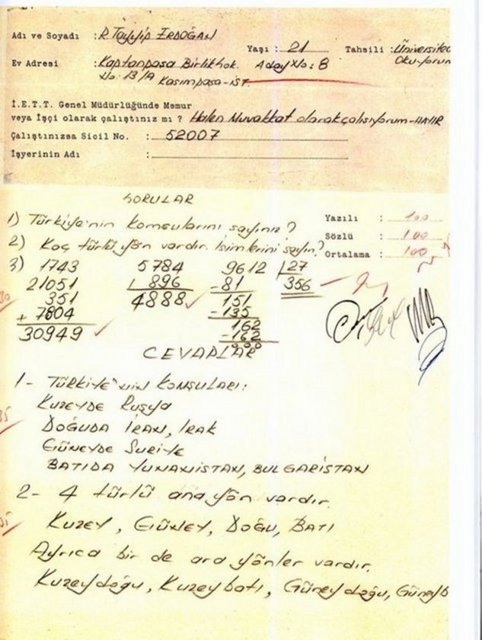 Adı ve Soyadı : R. Tayyip ERDOĞAN
Yaşı : 21 Tahsili : Üniversite Okuyorum
Ev Adresi : Kaptanpaşa Birlik Sok. Aday No: 8
No: 13/A
Kasımpaşa-İST.
İ.E.T.T. Genel Müdürlüğünde Memur
veya İşçi olarak çalıştınız mı ? Halen Muvakkat olarak çalışıyorum-HAYIR
Çalıştınızsa Sicil No. : 52007
İşyerinin Adı :
SORULAR
1) Türkiye'nin komşularını sayınız?
2) Kaç türlü yön vardır. İsimlerini sayın?
Yazılı : 100
Sözlü : 100
Ortalama : 100
3) 1743 5784 9612 27
21051 896 -81 356
351 4888 151
+ 7804 -135
30949 162
-162
000
CEVAPLAR
1- Türkiye'nin KOMŞULARI:
KUZEYDE RUSYA
DOĞUDA İRAN, IRAK
GÜNEYDE SURİYE
BATIDA YUNANİSTAN, BULGARİSTAN
2- 4 türlü ana yön vardır.
KUZEY, GÜNEY, DOĞU, BATI
Ayrıca bir de ara yönler vardır.
Kuzeydoğu, Kuzeybatı, Güneydoğu, Güneyb